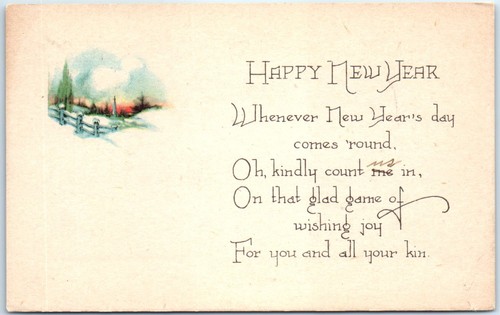 HAPPY NEW YEAR
Whenever New Year's day
comes 'round,
us
Oh, kindly count me in,
On that glad game of
wishing joy
For you and all your kin.